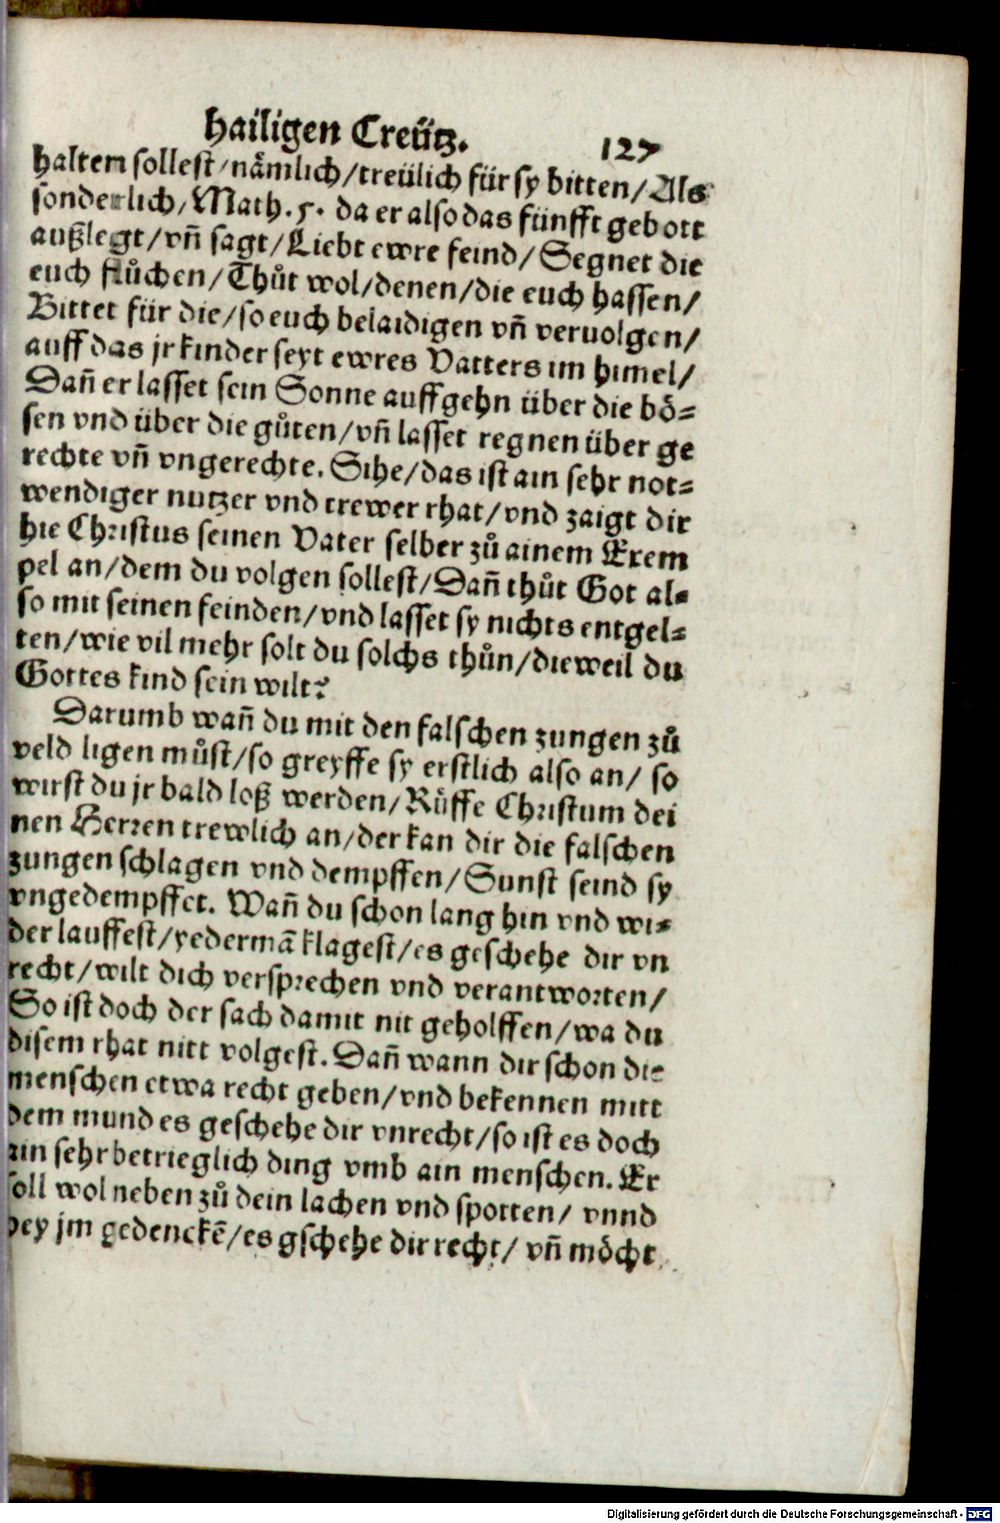 hailigen Creütz. 127
halten sollest/nämlich/treülich für sy bitten/Als
sonderlich/Math.5. da er also das fünfft gebott
außlegt/vn̄ sagt/Liebt ewre feind/Segnet die
euch flůchen/Thůt wol/denen/die euch hassen/
Bittet für die/so euch belaidigen vn̄ veruolgen/
auff das jr kinder seyt ewres Vatters im himel/
Dan̄ er lasset sein Sonne auffgehn über die bö⸗
sen vnd über die gůten/vn̄ lasset regnen über ge
rechte vn̄ vngerechte. Sihe/das ist ain sehr not⸗
wendiger nutzer vnd trewer rhat/vnd zaigt dir
hie Christus seinen Vater selber zů ainem Exem
pel an/dem du volgen sollest/Dan̄ thůt Got al⸗
so mit seinen feinden/vnd lasset sy nichts entgel⸗
ten/wie vil mehr solt du solchs thůn/dieweil du
Gottes kind sein wilt?
Darumb wan̄ du mit den falschen zungen zů
veld ligen můst/so greyffe sy erstlich also an/ so
wirst du jr bald loß werden/Růffe Christum dei
nen Herren trewlich an/der kan dir die falschen
zungen schlagen vnd dempffen/Sunst seind sy
vngedempffet. Wan̄ du schon lang hin vnd wi⸗
der lauffest/yedermā klagest/es geschehe dir vn
recht/wilt dich versprechen vnd verantworten/
So ist doch der sach damit nit geholffen/wa du
disem rhat nitt volgest. Dan̄ wann dir schon die
menschen etwa recht geben/vnd bekennen mitt
dem mund es geschehe dir vnrecht/so ist es doch
ain sehr betrieglich ding vmb ain menschen. Er
soll wol neben zů dein lachen vnd spotten/ vnnd
bey jm gedenckē/es gschehe dir recht/ vn̄ möcht
Digitalisierung gefördert durch die Deutsche Forschungsgemeinschaft - DFG